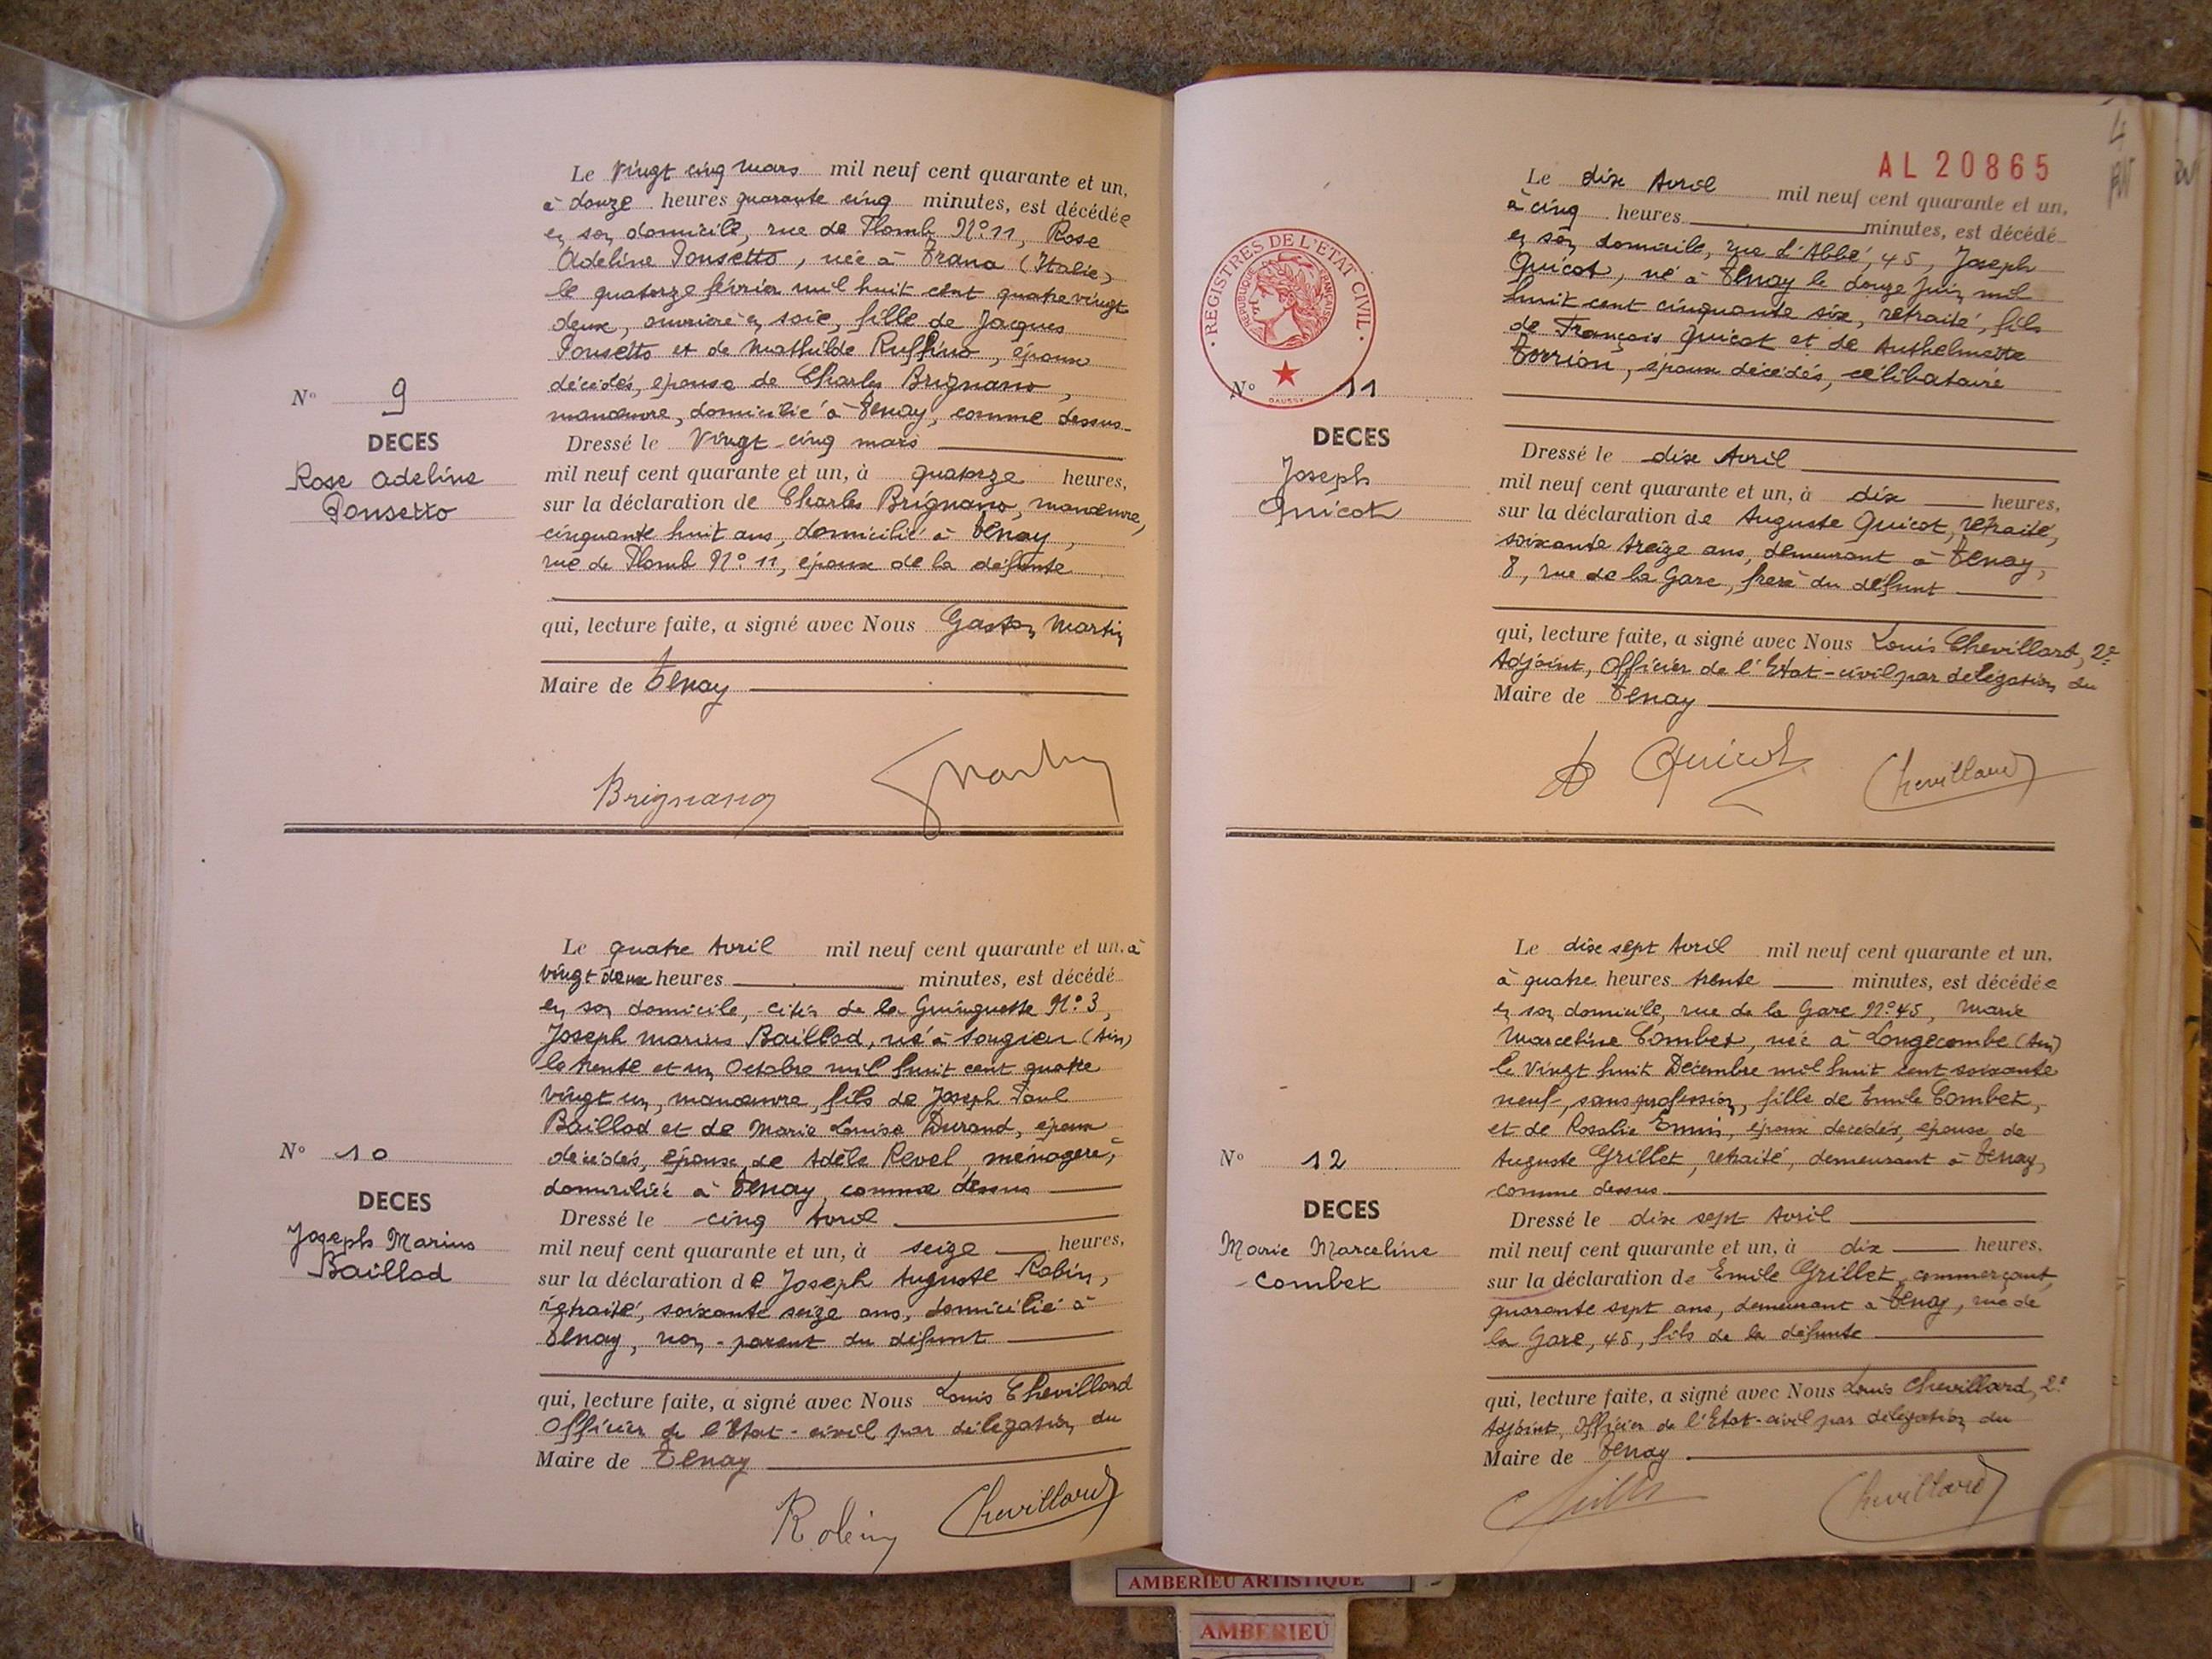 Le Vingt cinq mars mil neuf cent quarante et un,
à douze heures quarante cinq minutes, est décédée
en son domicile, rue de Plomb N° 11, Rose
Adeline Ponsetto, née à Trana (Italie)
le quatorze février mil huit cent quatre vingt
deux, ouvrière en soie, fille de Jacques
Ponsetto et de Mathilde Ruffino, époux
décédés, épouse de Charles Brignano,
manœuvre, domicilié à Tenay, comme dessus
N° 9
DECES
Rose Adeline
Ponsetto
Dressé le Vingt cinq mars
mil neuf cent quarante et un, à quatorze heures,
sur la déclaration de Charles Brignano, manœuvre,
cinquante huit ans, domicilié à Tenay,
rue de Plomb N° 11, époux de la défunte
qui, lecture faite, a signé avec Nous Gaston Martin
Maire de Tenay
Brignano
Le quatre Avril mil neuf cent quarante et un, à
vingt deux heures minutes, est décédé
en son domicile, cités de la Guinguette N° 3,
Joseph Marius Baillod, né à Songieu (Ain)
le trente et un Octobre mil huit cent quatre
vingt un, manœuvre, fils de Joseph Paul
Baillod et de Marie Louise Durand, époux
décédés, époux de Adèle Revel, ménagère,
domiciliée à Tenay, comme dessus
N° 10
DECES
Joseph Marius
Baillod
Dressé le cinq Avril
mil neuf cent quarante et un, à seize heures,
sur la déclaration de Joseph Auguste Robin,
retraité, soixante seize ans, domicilié à
Tenay, non-parent du défunt
qui, lecture faite, a signé avec Nous Louis Chevillard
Officier de l'Etat-civil par délégation du
Maire de Tenay
Robin Chevillard
4
AL 20865
Le dix Avril mil neuf cent quarante et un,
à cinq heures minutes, est décédé
en son domicile, rue d'Abbé, 45, Joseph
Quicot, né à Tenay le douze Juin mil
huit cent cinquante six, retraité, fils
de François Quicot et de Anthelmette
Torrion, époux décédés, célibataire
REGISTRES DE L'ETAT CIVIL
REPUBLIQUE FRANÇAISE
DAUSSY
N° 11
DECES
Joseph
Quicot
Dressé le dix Avril
mil neuf cent quarante et un, à dix heures,
sur la déclaration de Auguste Quicot, retraité,
soixante treize ans, demeurant à Tenay,
8, rue de la Gare, frère du défunt
qui, lecture faite, a signé avec Nous Louis Chevillard, 2e
Adjoint, Officier de l'Etat-civil par délégation du
Maire de Tenay
A Quicot Chevillard
Le dix sept Avril mil neuf cent quarante et un,
à quatre heures trente minutes, est décédée
en son domicile, rue de la Gare N° 45, Marie
Marceline Combet, née à Longecombe (Ain)
le Vingt huit Décembre mil huit cent soixante
neuf, sans profession, fille de Emile Combet,
et de Rosalie époux décédés, épouse de
Auguste Grillet, retraité, demeurant à Tenay,
comme dessus
N° 12
DECES
Marie Marceline
Combet
Dressé le dix sept Avril
mil neuf cent quarante et un, à dix heures,
sur la déclaration de Emile Grillet, commerçant,
quarante sept ans, demeurant à Tenay, rue de
la Gare, 45, fils de la défunte
qui, lecture faite, a signé avec Nous Louis Chevillard, 2e
Adjoint, Officier de l'Etat-civil par délégation du
Maire de Tenay
Chevillard
AMBERIEU ARTISTIQUE
AMBERIEU